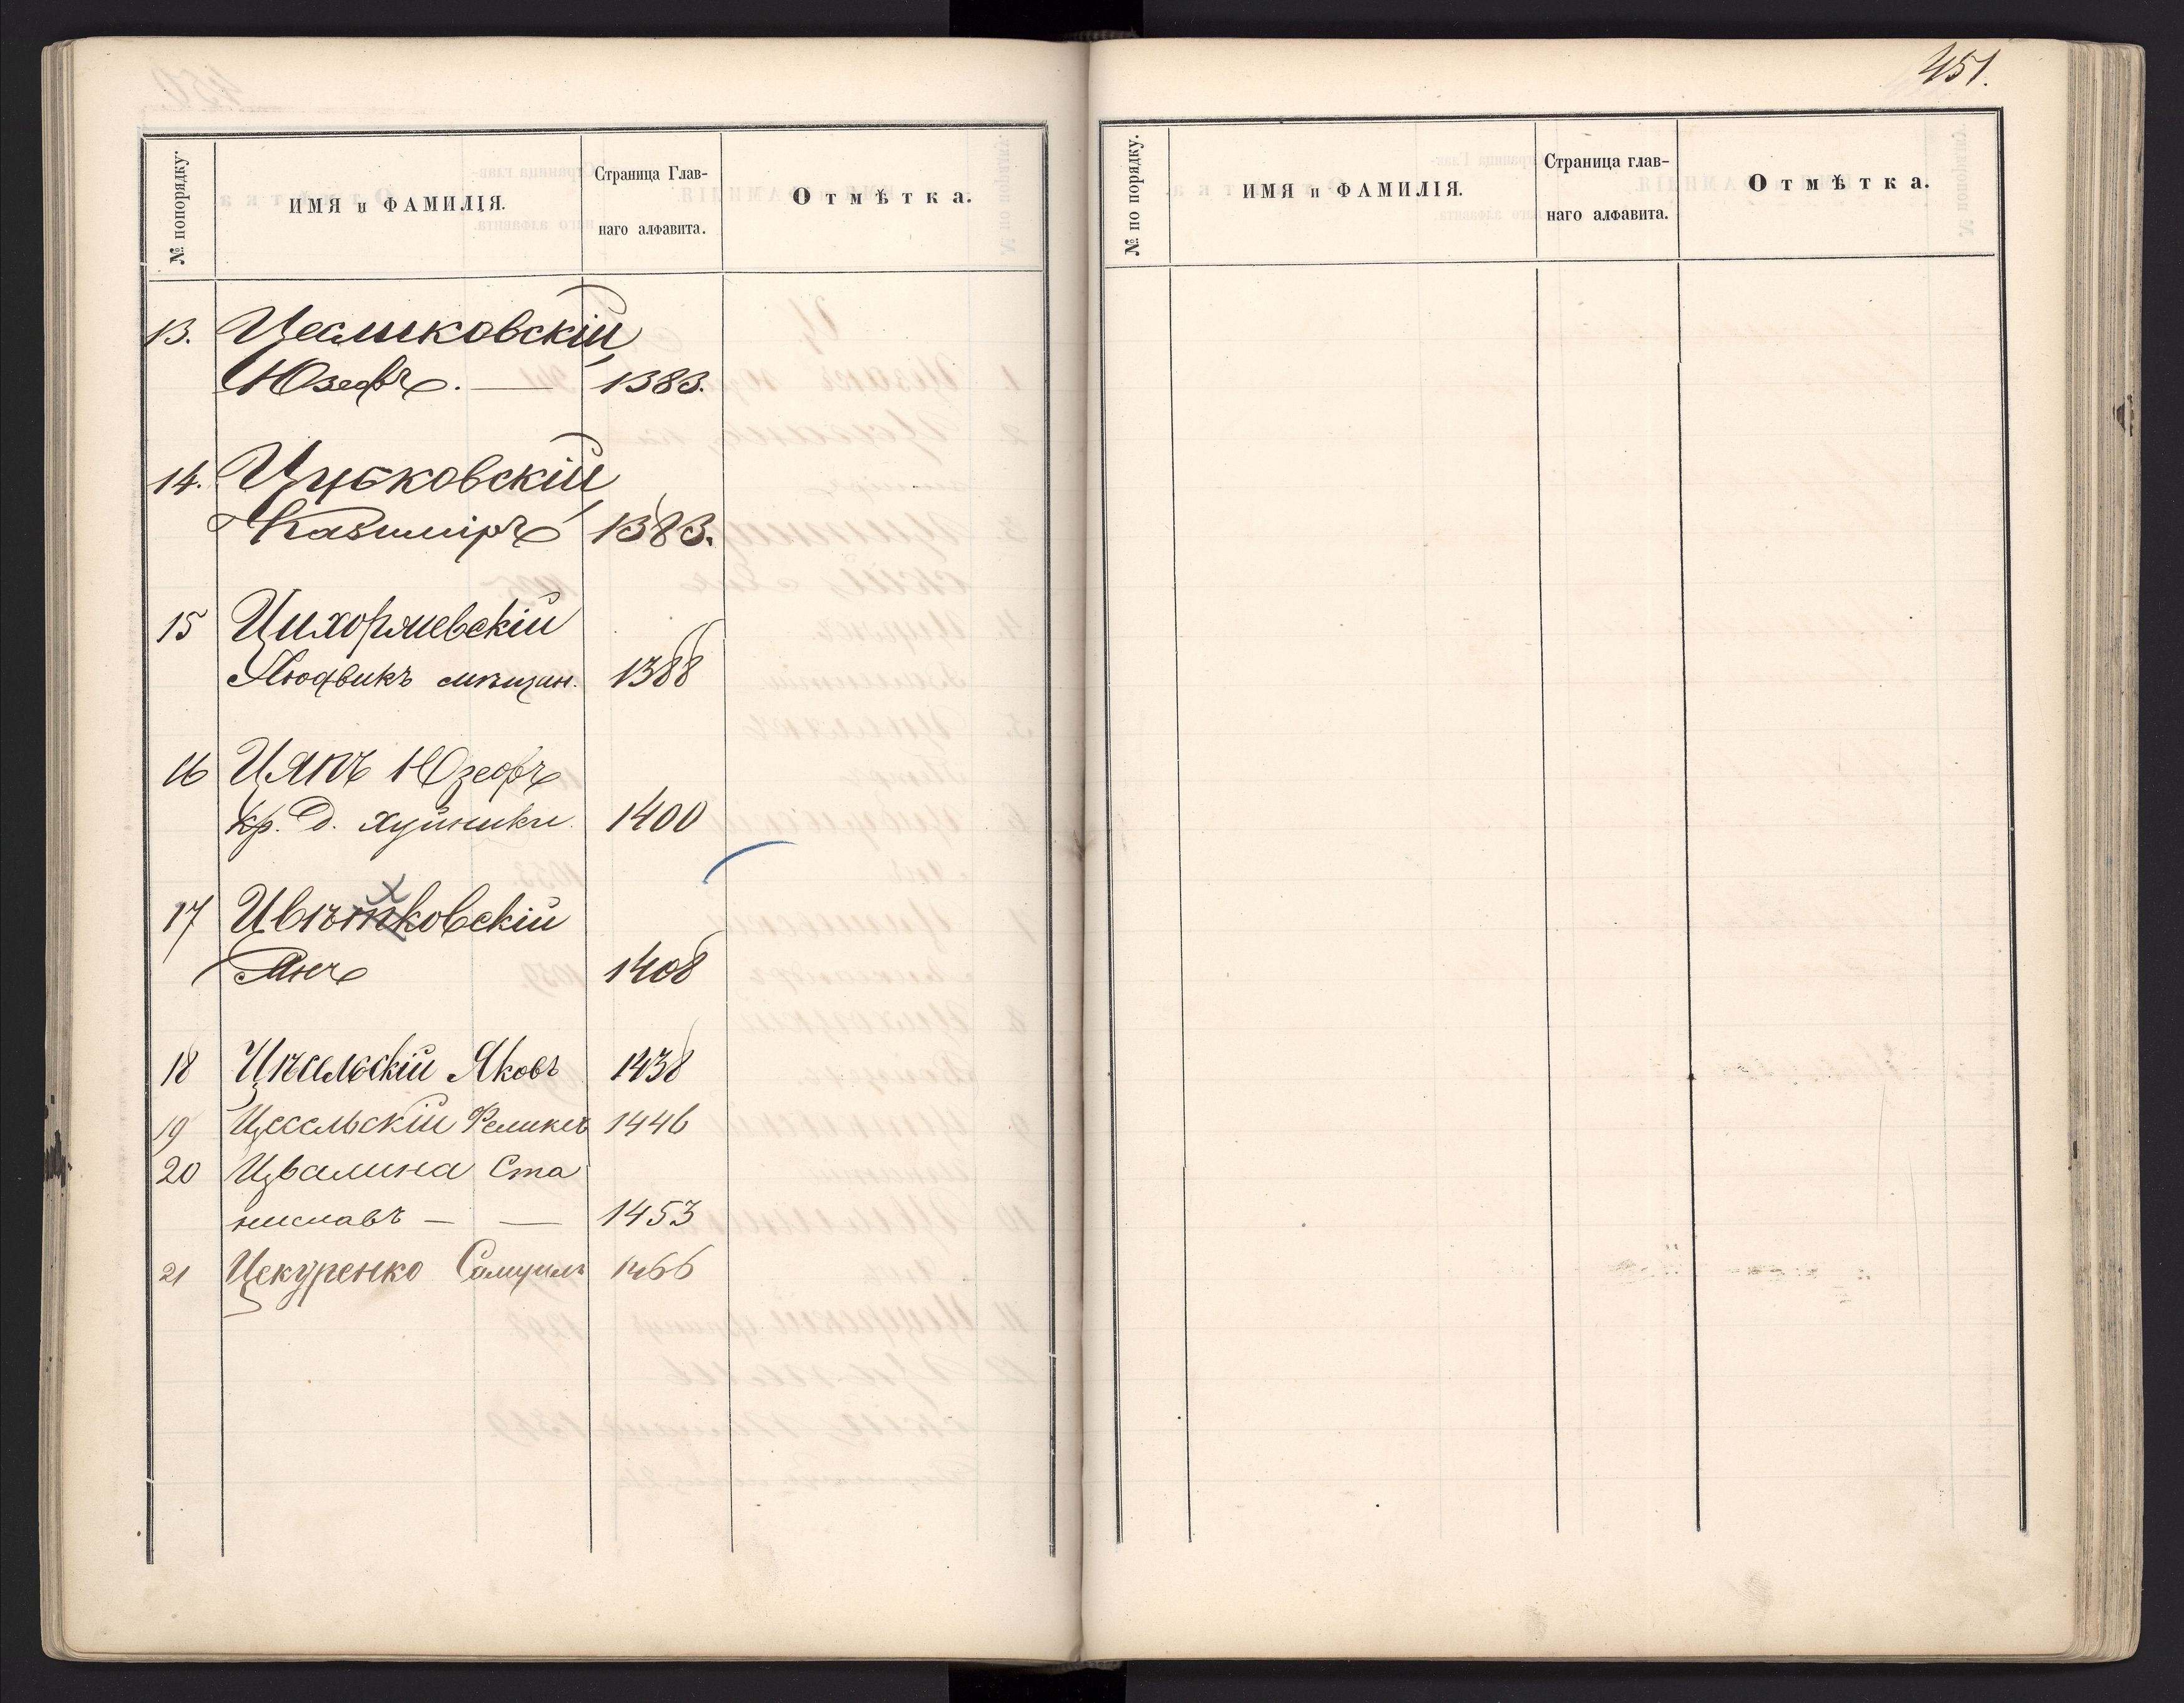 № попорядку.
ИМЯ и ФАМИЛІЯ.
Страница Глав-
наго алфавита.
Отмѣтка.
13. Цесликовскій,
Юзефъ. — 1383.
14. Цуцковскій,
Казиміръ 1383.
15 Цихоржевскій
Людвикъ мѣщан. 1388
16 Цяпъ Юзефъ
кр. д. Хуйники. 1400
17 Цвѣтковскій
х
Янъ 1408
18 Цѣсельскій Яковъ 1438
19 Цесельскій Феликсъ 1446
20 Цвалина Ста
ниславъ — — 1453
21 Цекуренко Самуилъ 1466
451.
№ по порядку.
ИМЯ и ФАМИЛІЯ.
Страница глав-
наго алфавита.
Отмѣтка.